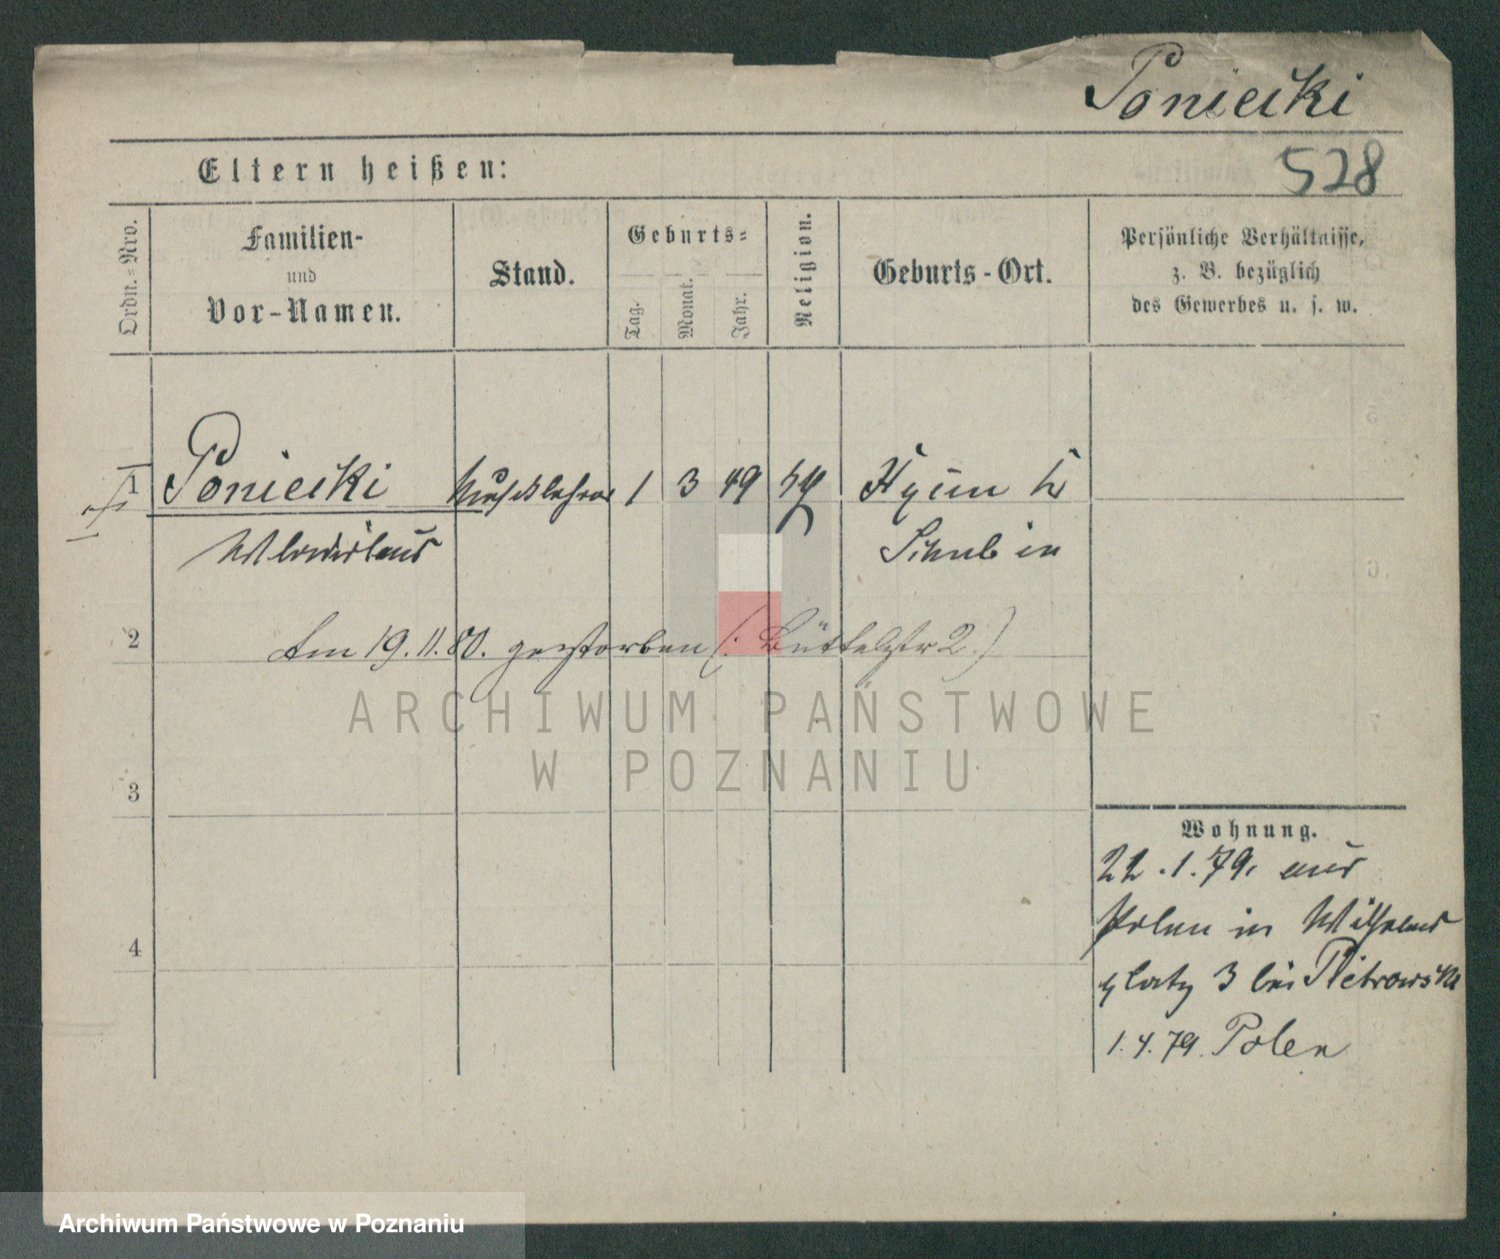 Poniecki
528
Eltern heißen:
Ordn.-Nro.
Familien-
und
Vor-Namen.
Stand.
Geburts-
Tag.
Monat.
Jahr.
Religion.
Geburts-Ort.
Persönliche Verhältnisse,
z. B. bezüglich
des Gewerbes u. s. w.
1 Poniecki Musiklehrer 1 3 49
Schubin
2
Am 19.11.80. gestorben (: Büttelstr 2.)
ARCHIWUM PAŃSTWOWE
W POZNANIU
3
Wohnung.
22.1.79. aus
Polen in Wilhelms
platz 3 bei Pietrowski
4
1.4.79. Polen
Archiwum Państwowe w Poznaniu